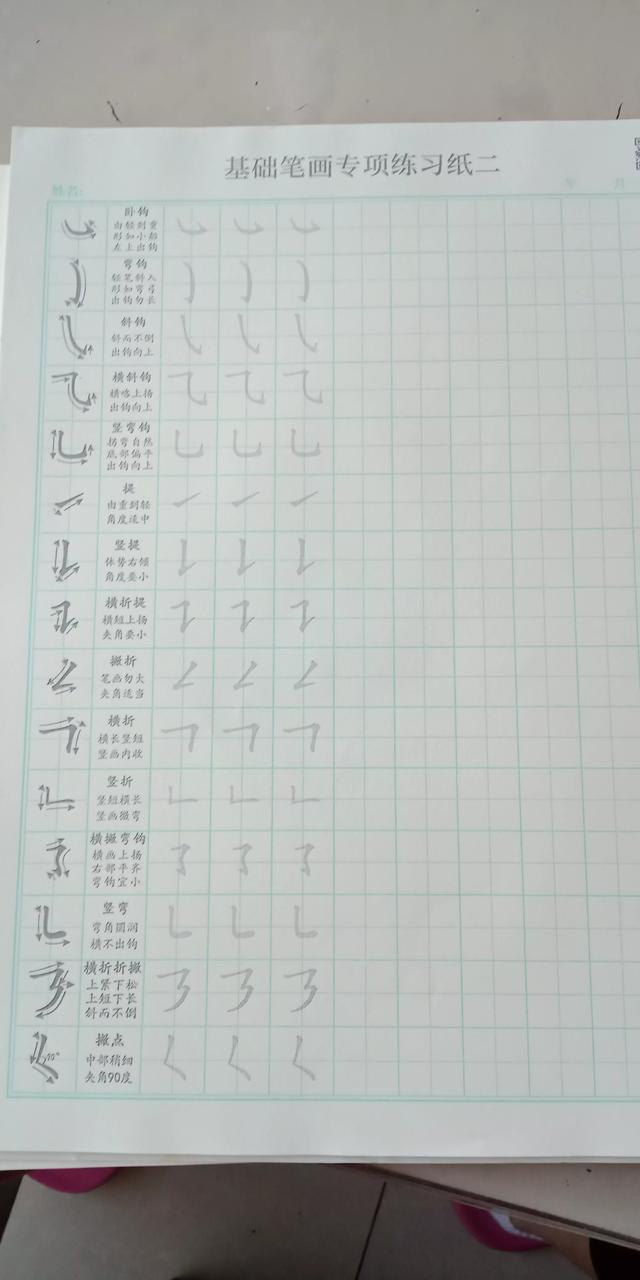 基础笔画专项练习纸二
姓名:
年 月
卧钩
由轻到重
形如小船
左上出钩
弯钩
轻笔斜入
形如弯弓
出钩勿长
斜钩
斜而不倒
出钩向上
横斜钩
横略上扬
出钩向上
竖弯钩
拐弯自然
底部偏平
出钩向上
提
由重到轻
角度适中
竖提
体势右倾
角度要小
横折提
横短上扬
夹角要小
撇折
笔画勿大
夹角适当
横折
横长竖短
竖画内收
竖折
竖短横长
竖画微弯
横撇弯钩
横画上扬
右部平齐
弯钩宜小
竖弯
弯角圆润
横不出钩
横折折撇
上紧下松
上短下长
斜而不倒
撇点
中部稍细
夹角90度
90°